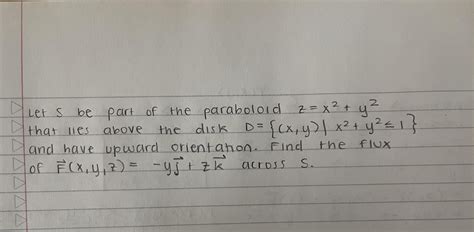 Let S be part of the paraboloid z = x² + y²
that lies above the disk D = {(x,y) | x² + y² ≤ 1}
and have upward orientation. Find the flux
of F⃗(x,y,z) = -yj⃗ + zk⃗ across S.